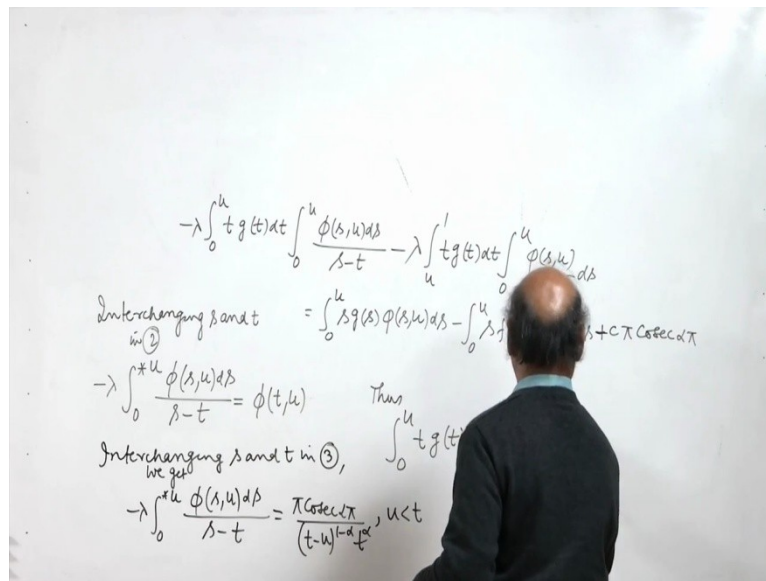 -λ∫₀ᵘ t g(t)dt ∫₀ᵘ φ(s,u)ds / s-t - λ∫ᵤ¹ t g(t)dt ∫₀ᵘ φ(s,u) ds
Interchanging s and t
in ②
= ∫₀ᵘ s g(s) φ(s,u)ds - ∫₀ᵘ s + cπ Cosec απ
-λ∫₀*ᵘ φ(s,u)ds / s-t = φ(t,u)
Thus
∫₀ᵘ t g(t)
Interchanging s and t in ③,
we get
-λ∫₀*ᵘ φ(s,u)ds / s-t = π Cosec απ / (t-u)¹⁻ᵅ tᵅ, u<t